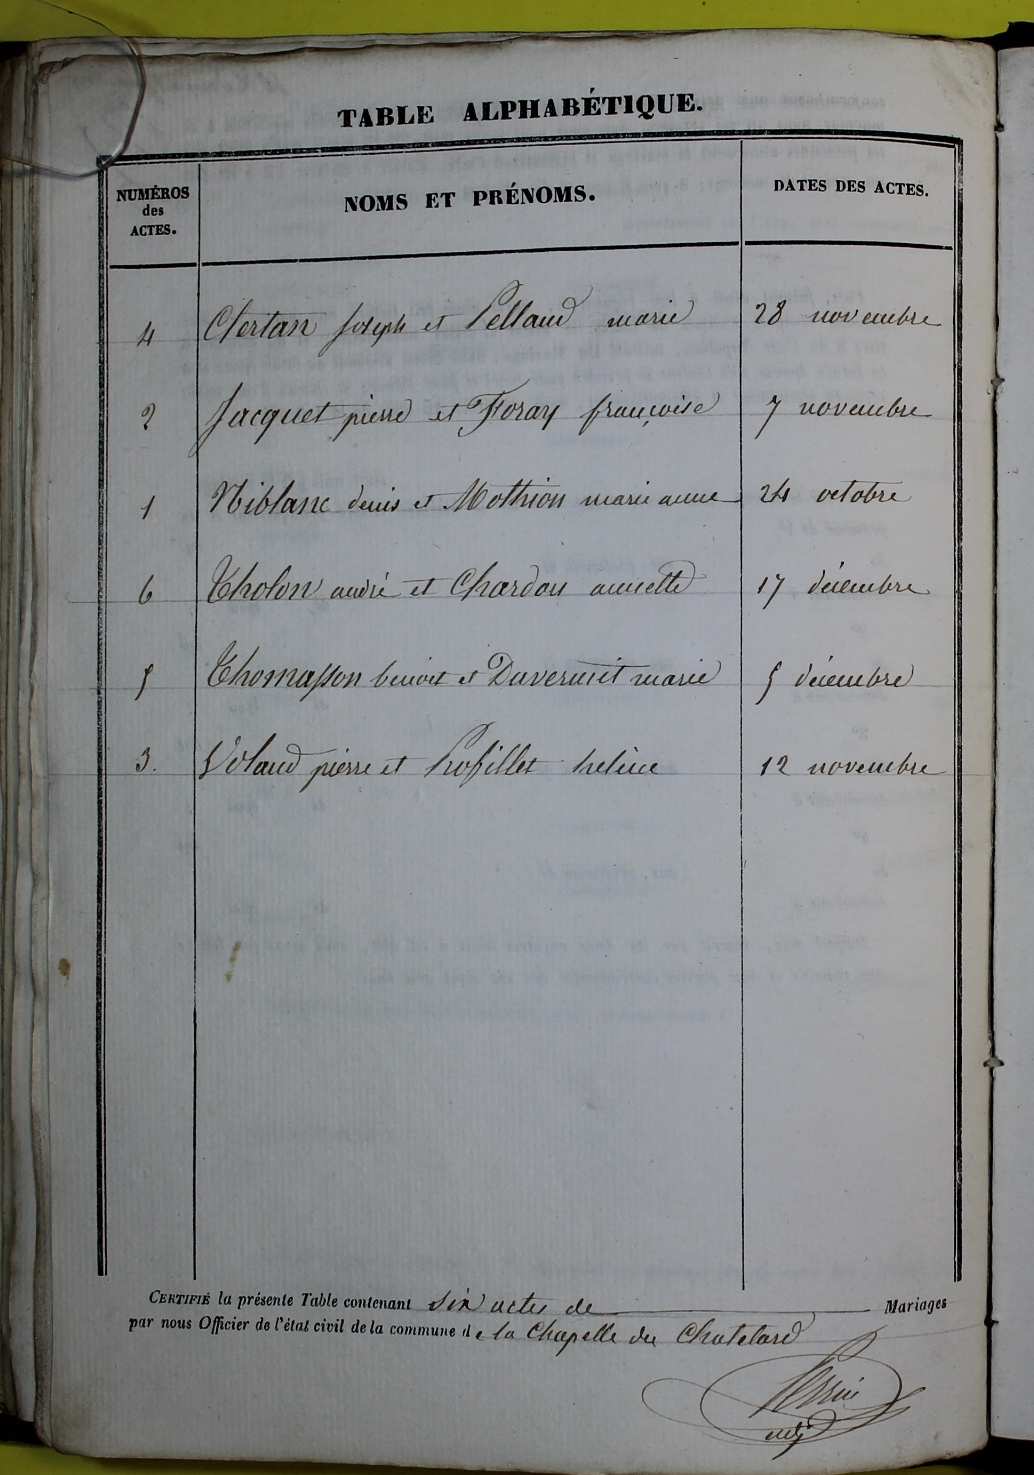 TABLE ALPHABÉTIQUE.
NUMÉROS des ACTES. NOMS ET PRÉNOMS. DATES DES ACTES.
4 Clertan Joseph et Pellaud marie 28 novembre
2 Jacquet pierre et Foray françoise 7 novembre
1 Niblanc denis et Mothion marie anne 24 octobre
6 Tholon andré et Chardon annette 17 décembre
5 Thomasson benoit et Duvernet marie 5 décembre
3. Volaud pierre et Profillet heleine 12 novembre
CERTIFIÉ la présente Table contenant six actes de Mariages
par nous Officier de l'état civil de la commune de la Chapelle du Chatelard
adj